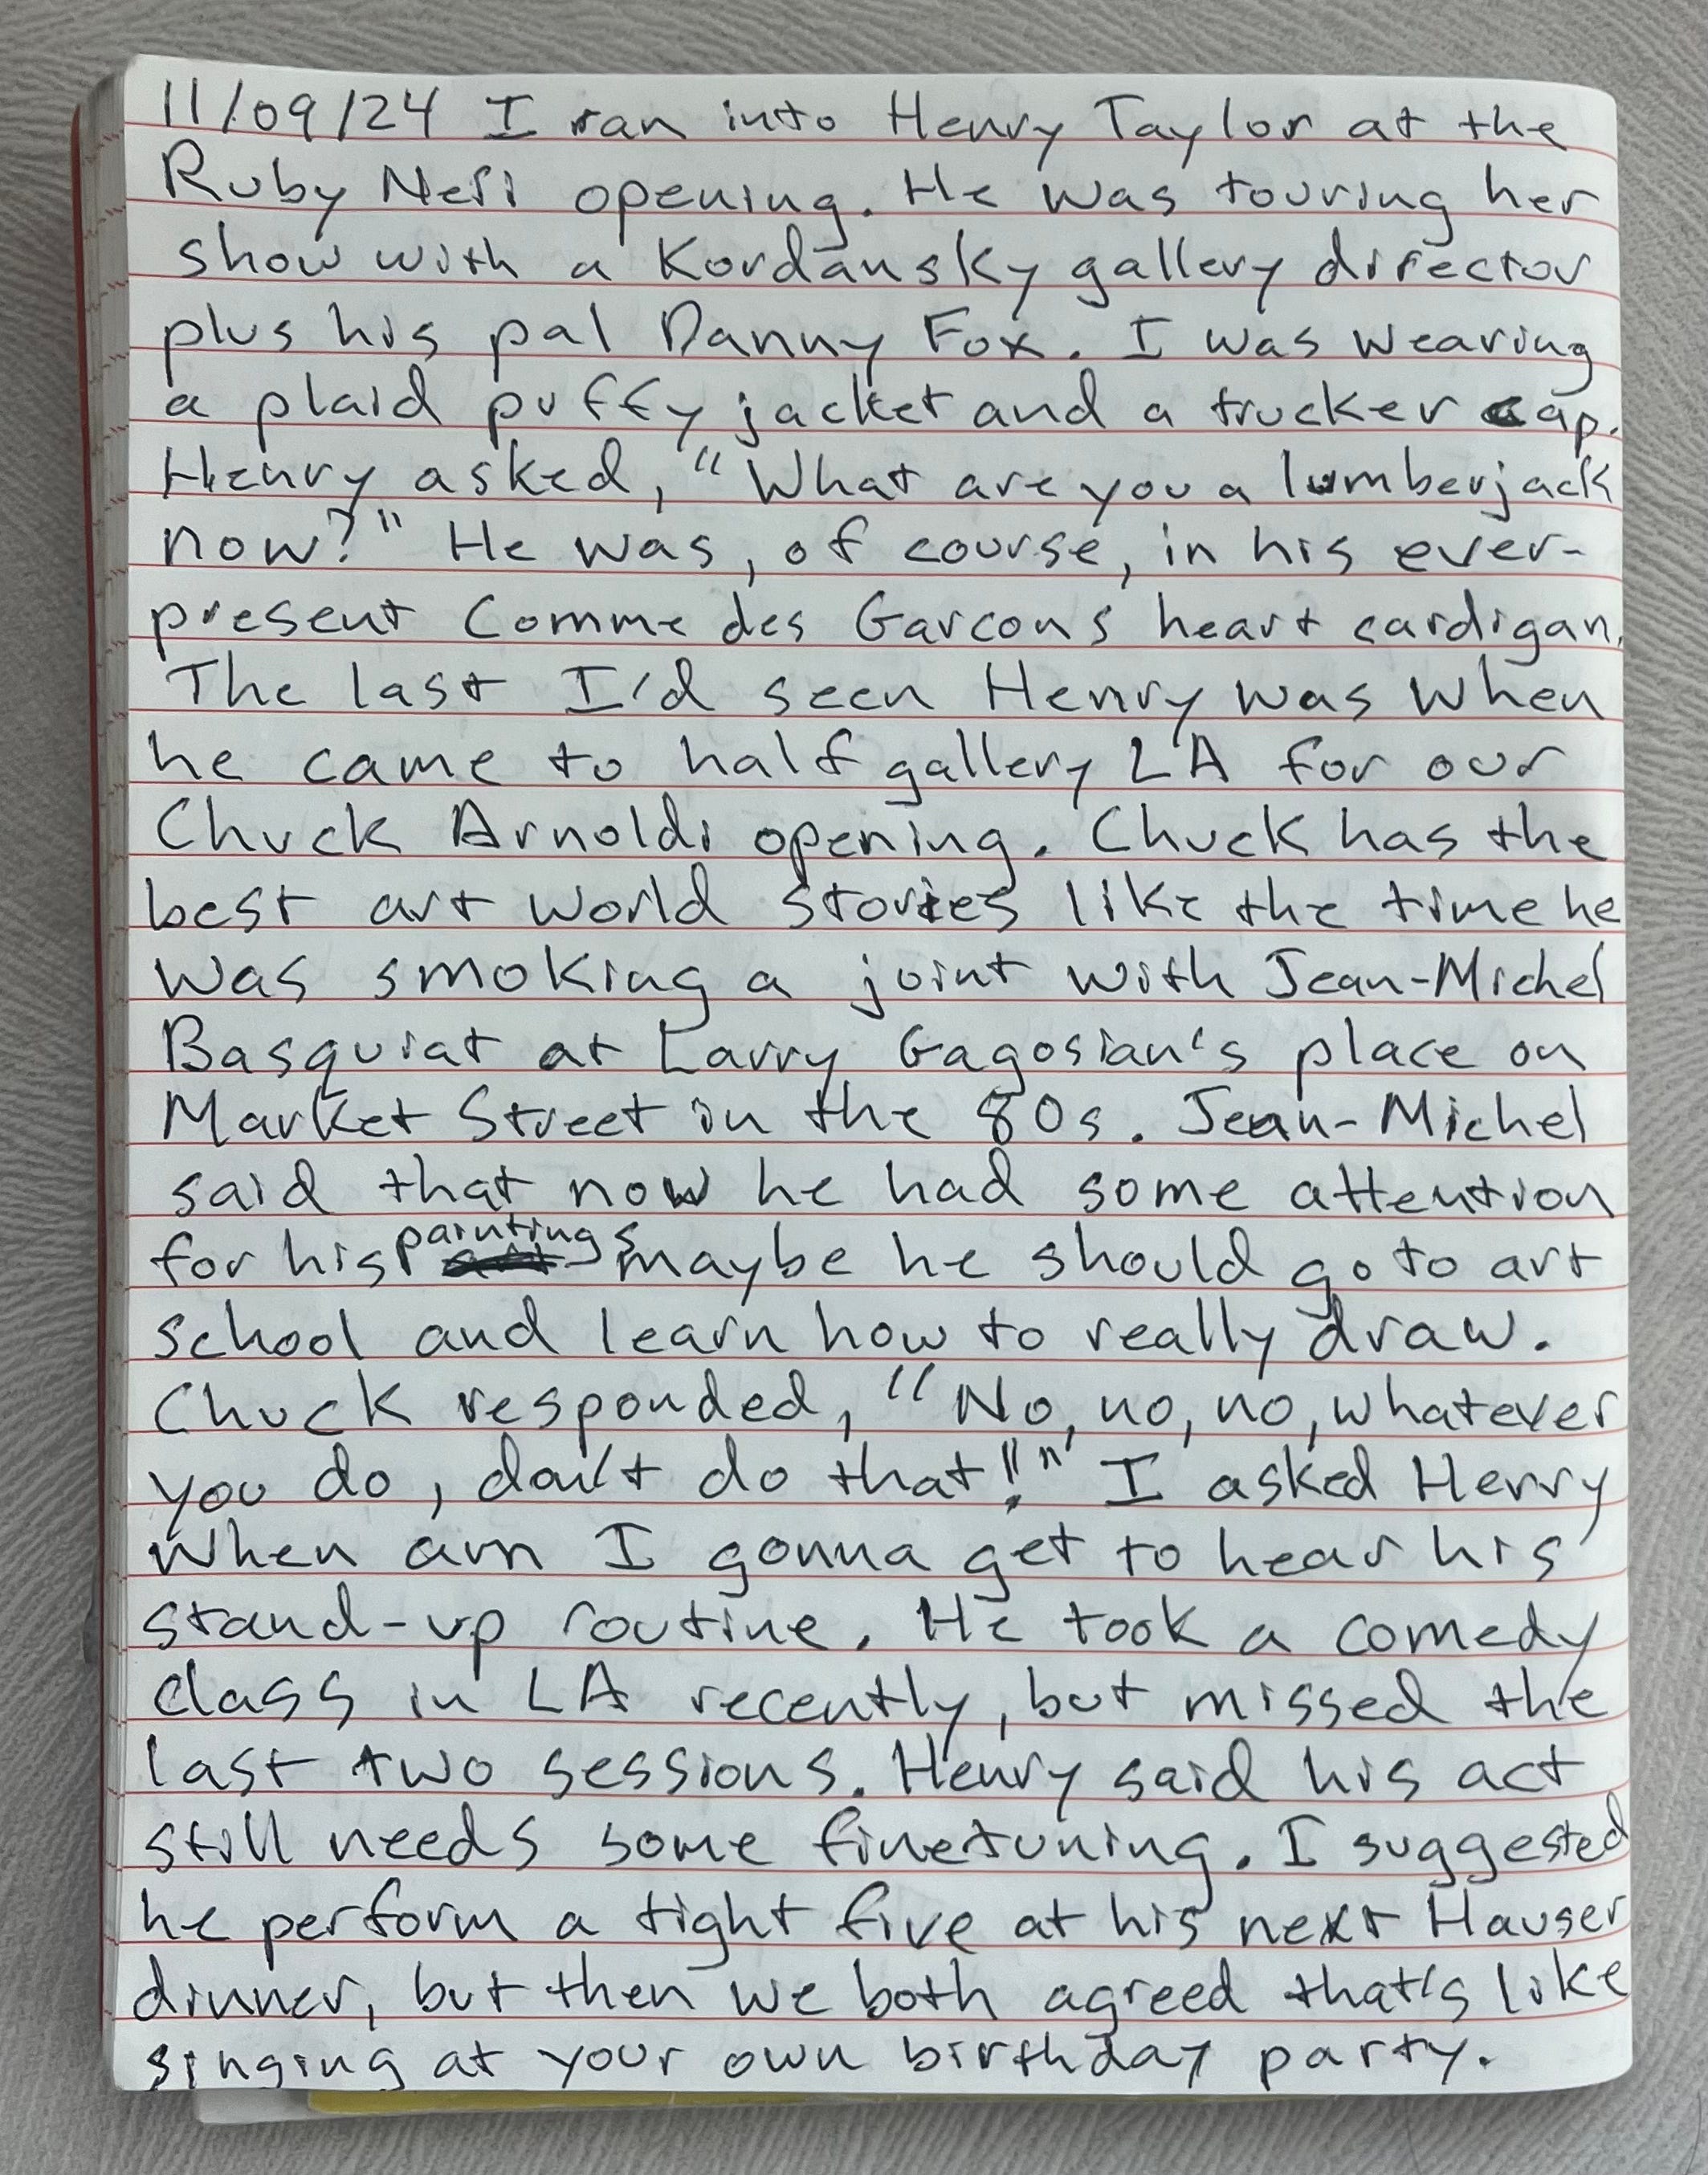 11/09/24 I ran into Henry Taylor at the
Ruby Neri opening. He was touring her
show with a Kordansky gallery director
plus his pal Danny Fox. I was wearing
a plaid puffy jacket and a trucker cap.
Henry asked, "What are you a lumberjack
now?" He was, of course, in his ever-
present Comme des Garcons heart cardigan.
The last I'd seen Henry was when
he came to half gallery LA for our
Chuck Arnoldi opening. Chuck has the
best art world stories like the time he
was smoking a joint with Jean-Michel
Basquiat at Larry Gagosian's place on
Market Street in the 80s. Jean-Michel
said that now he had some attention
for his paintings maybe he should go to art
school and learn how to really draw.
Chuck responded, "No, no, no, whatever
you do, don't do that!" I asked Henry
when am I gonna get to hear his
stand-up routine. He took a comedy
class in LA recently, but missed the
last two sessions. Henry said his act
still needs some finetuning. I suggested
he perform a tight five at his next Hauser
dinner, but then we both agreed that's like
singing at your own birthday party.